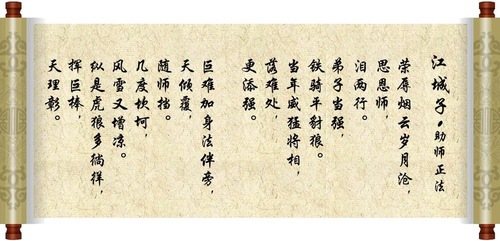 江城子•助师正法
荣辱烟云岁月沧，
思恩师，
泪两行。
弟子当强，
铁骑平豺狼。
当年威猛将相，
落难处，
更添强。
巨难加身法伴旁，
天倾覆，
随师挡。
几度坎坷，
风雪又增凉。
纵是虎狼多徜徉，
挥巨棒，
天理彰。